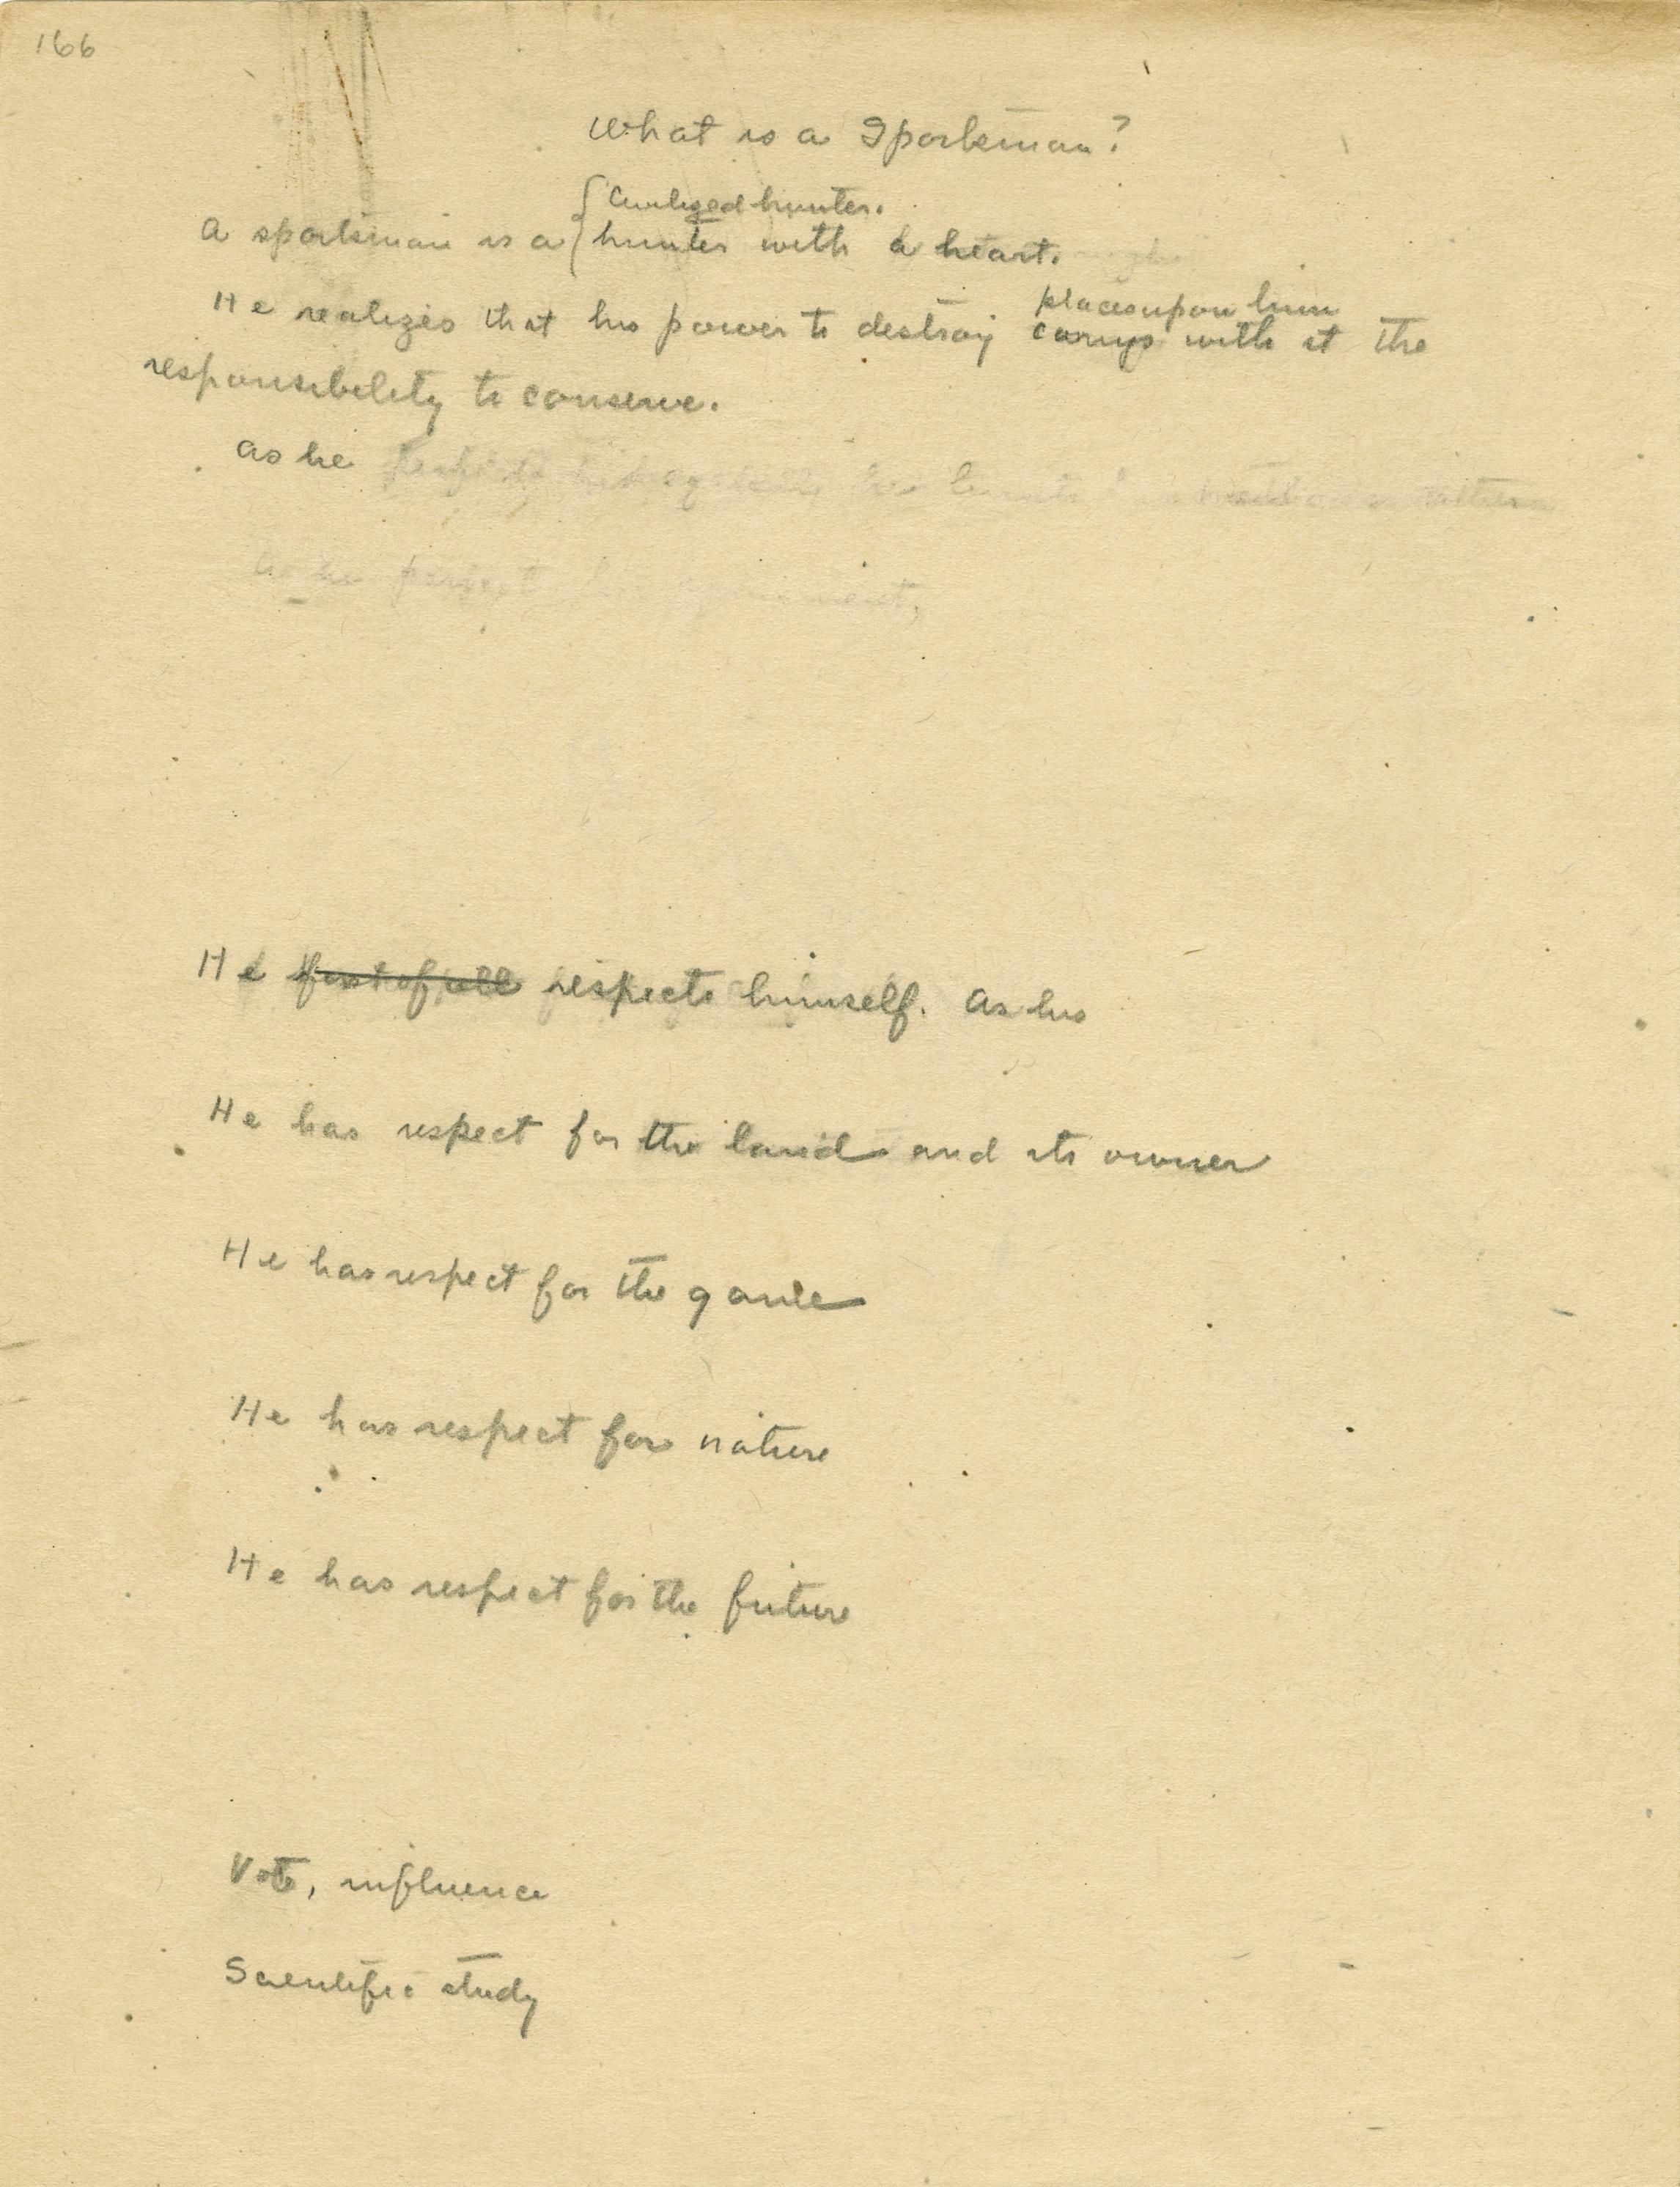 166
What is a Sportsman?
Civilized hunter.
A sportsman is a hunter with a heart.
places upon him
He realizes that his power to destroy carrys with it the
responsibility to conserve.
As he
As he perfects his
He first of all respects himself. As his
He has respect for the land and its owner
He has respect for the game
He has respect for nature
He has respect for the future
Vote, influence
Scientific study